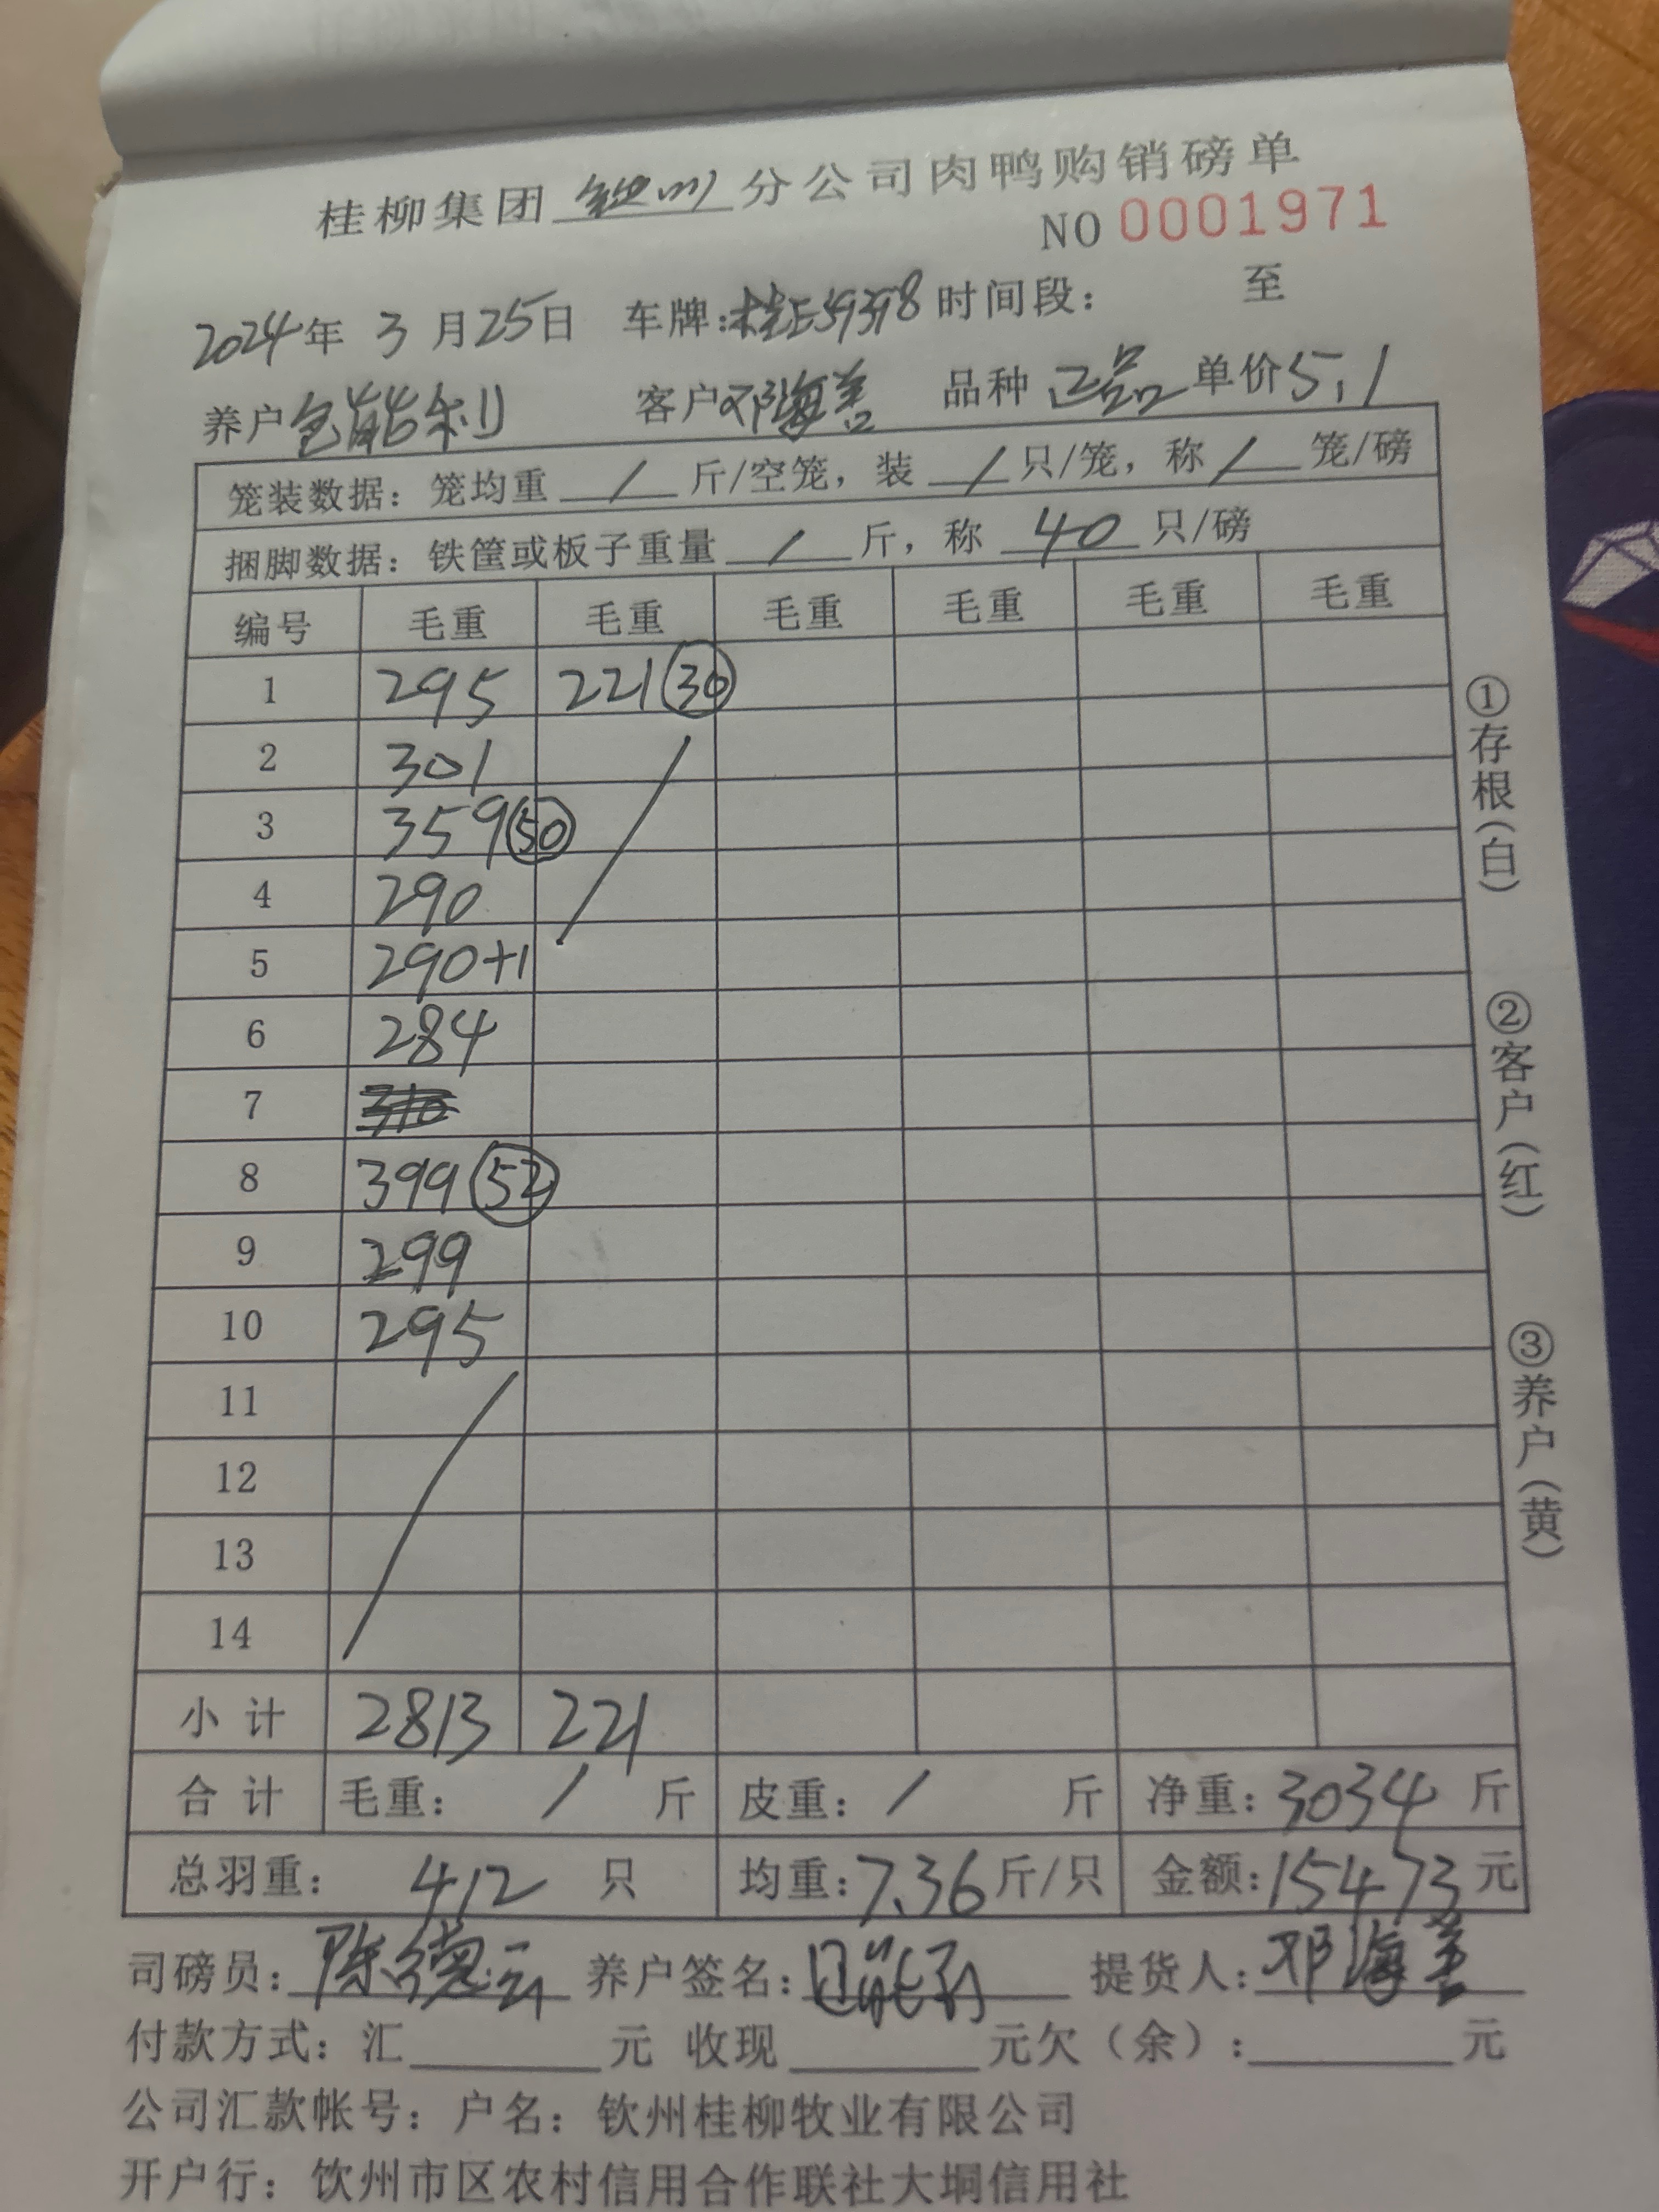 桂柳集团 钦州 分公司肉鸭购销磅单
NO 0001971
2024年 3 月25日 车牌:桂E39398 时间段: 至
养户 包能利 客户 邓海善 品种 正品 单价5.1
笼装数据: 笼均重 / 斤/空笼, 装 / 只/笼, 称 / 笼/磅
捆脚数据: 铁筐或板子重量 / 斤, 称 40 只/磅
编号 毛重 毛重 毛重 毛重 毛重 毛重
1 295 221 30
2 301
3 359 50
4 290
5 290+1
6 284
7
8 399 52
9 299
10 295
11
12
13
14
小计 2813 221
合计 毛重: / 斤 皮重: / 斤 净重: 3034 斤
总羽重: 412 只 均重: 7.36 斤/只 金额: 15473 元
司磅员: 陈德云 养户签名: 包能利 提货人: 邓海善
付款方式: 汇 元 收现 元欠(余): 元
公司汇款帐号: 户名: 钦州桂柳牧业有限公司
开户行: 钦州市区农村信用合作联社大垌信用社
①存根(白)
②客户(红)
③养户(黄)